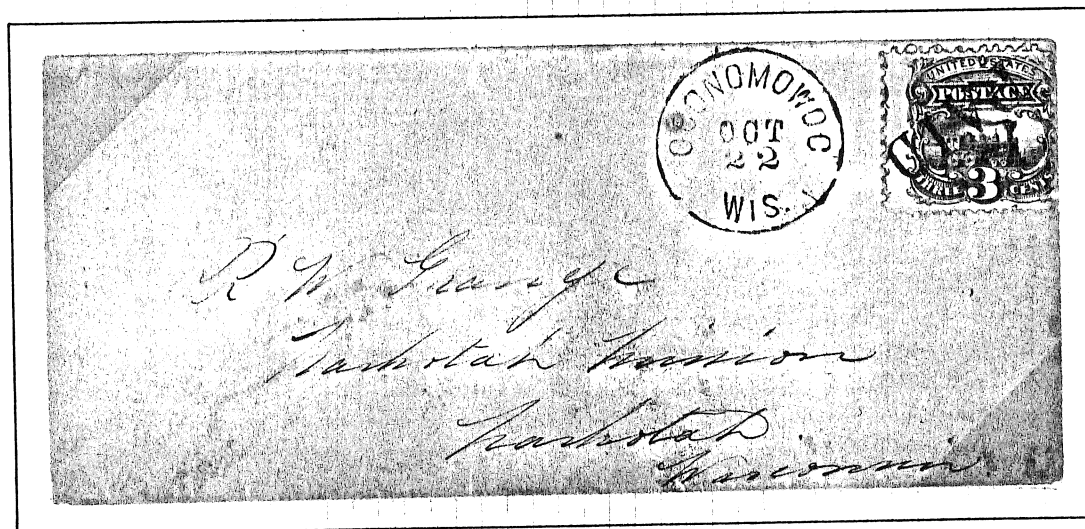 OCONOMOWOC
OCT
22
WIS.
UNITED STATES
POSTAGE
3
R W Grange
Nashotah Mission
Nashotah
Wisconsin